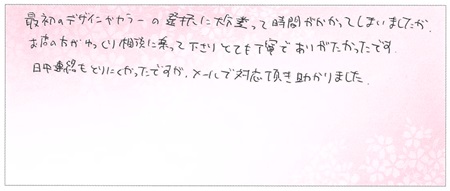 最初のデザインやカラーの選択に大分迷って時間がかかってしまいましたが、
お店の方がゆっくり相談に乗って下さりとても丁寧でありがたかったです。
日中連絡もとりにくかったですが、メールで対応頂き助かりました。